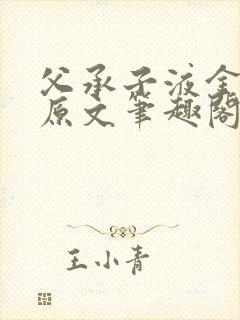 父承子液全
原文笔趣阁
王小青